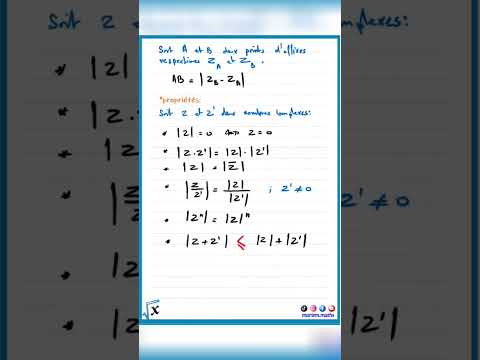 Soit A et B deux points d'affixes
respectives Z_A et Z_B.
AB = |Z_B - Z_A|
*propriétés:
Soit z et z' deux nombres complexes:
* |z| = 0 ⟺ z = 0
* |z · z'| = |z| · |z'|
* |z| = |z̅|
* |z/z'| = |z|/|z'| ; z' ≠ 0
* |zⁿ| = |z|ⁿ
* |z + z'| ≤ |z| + |z'|
√x
mariam.maths